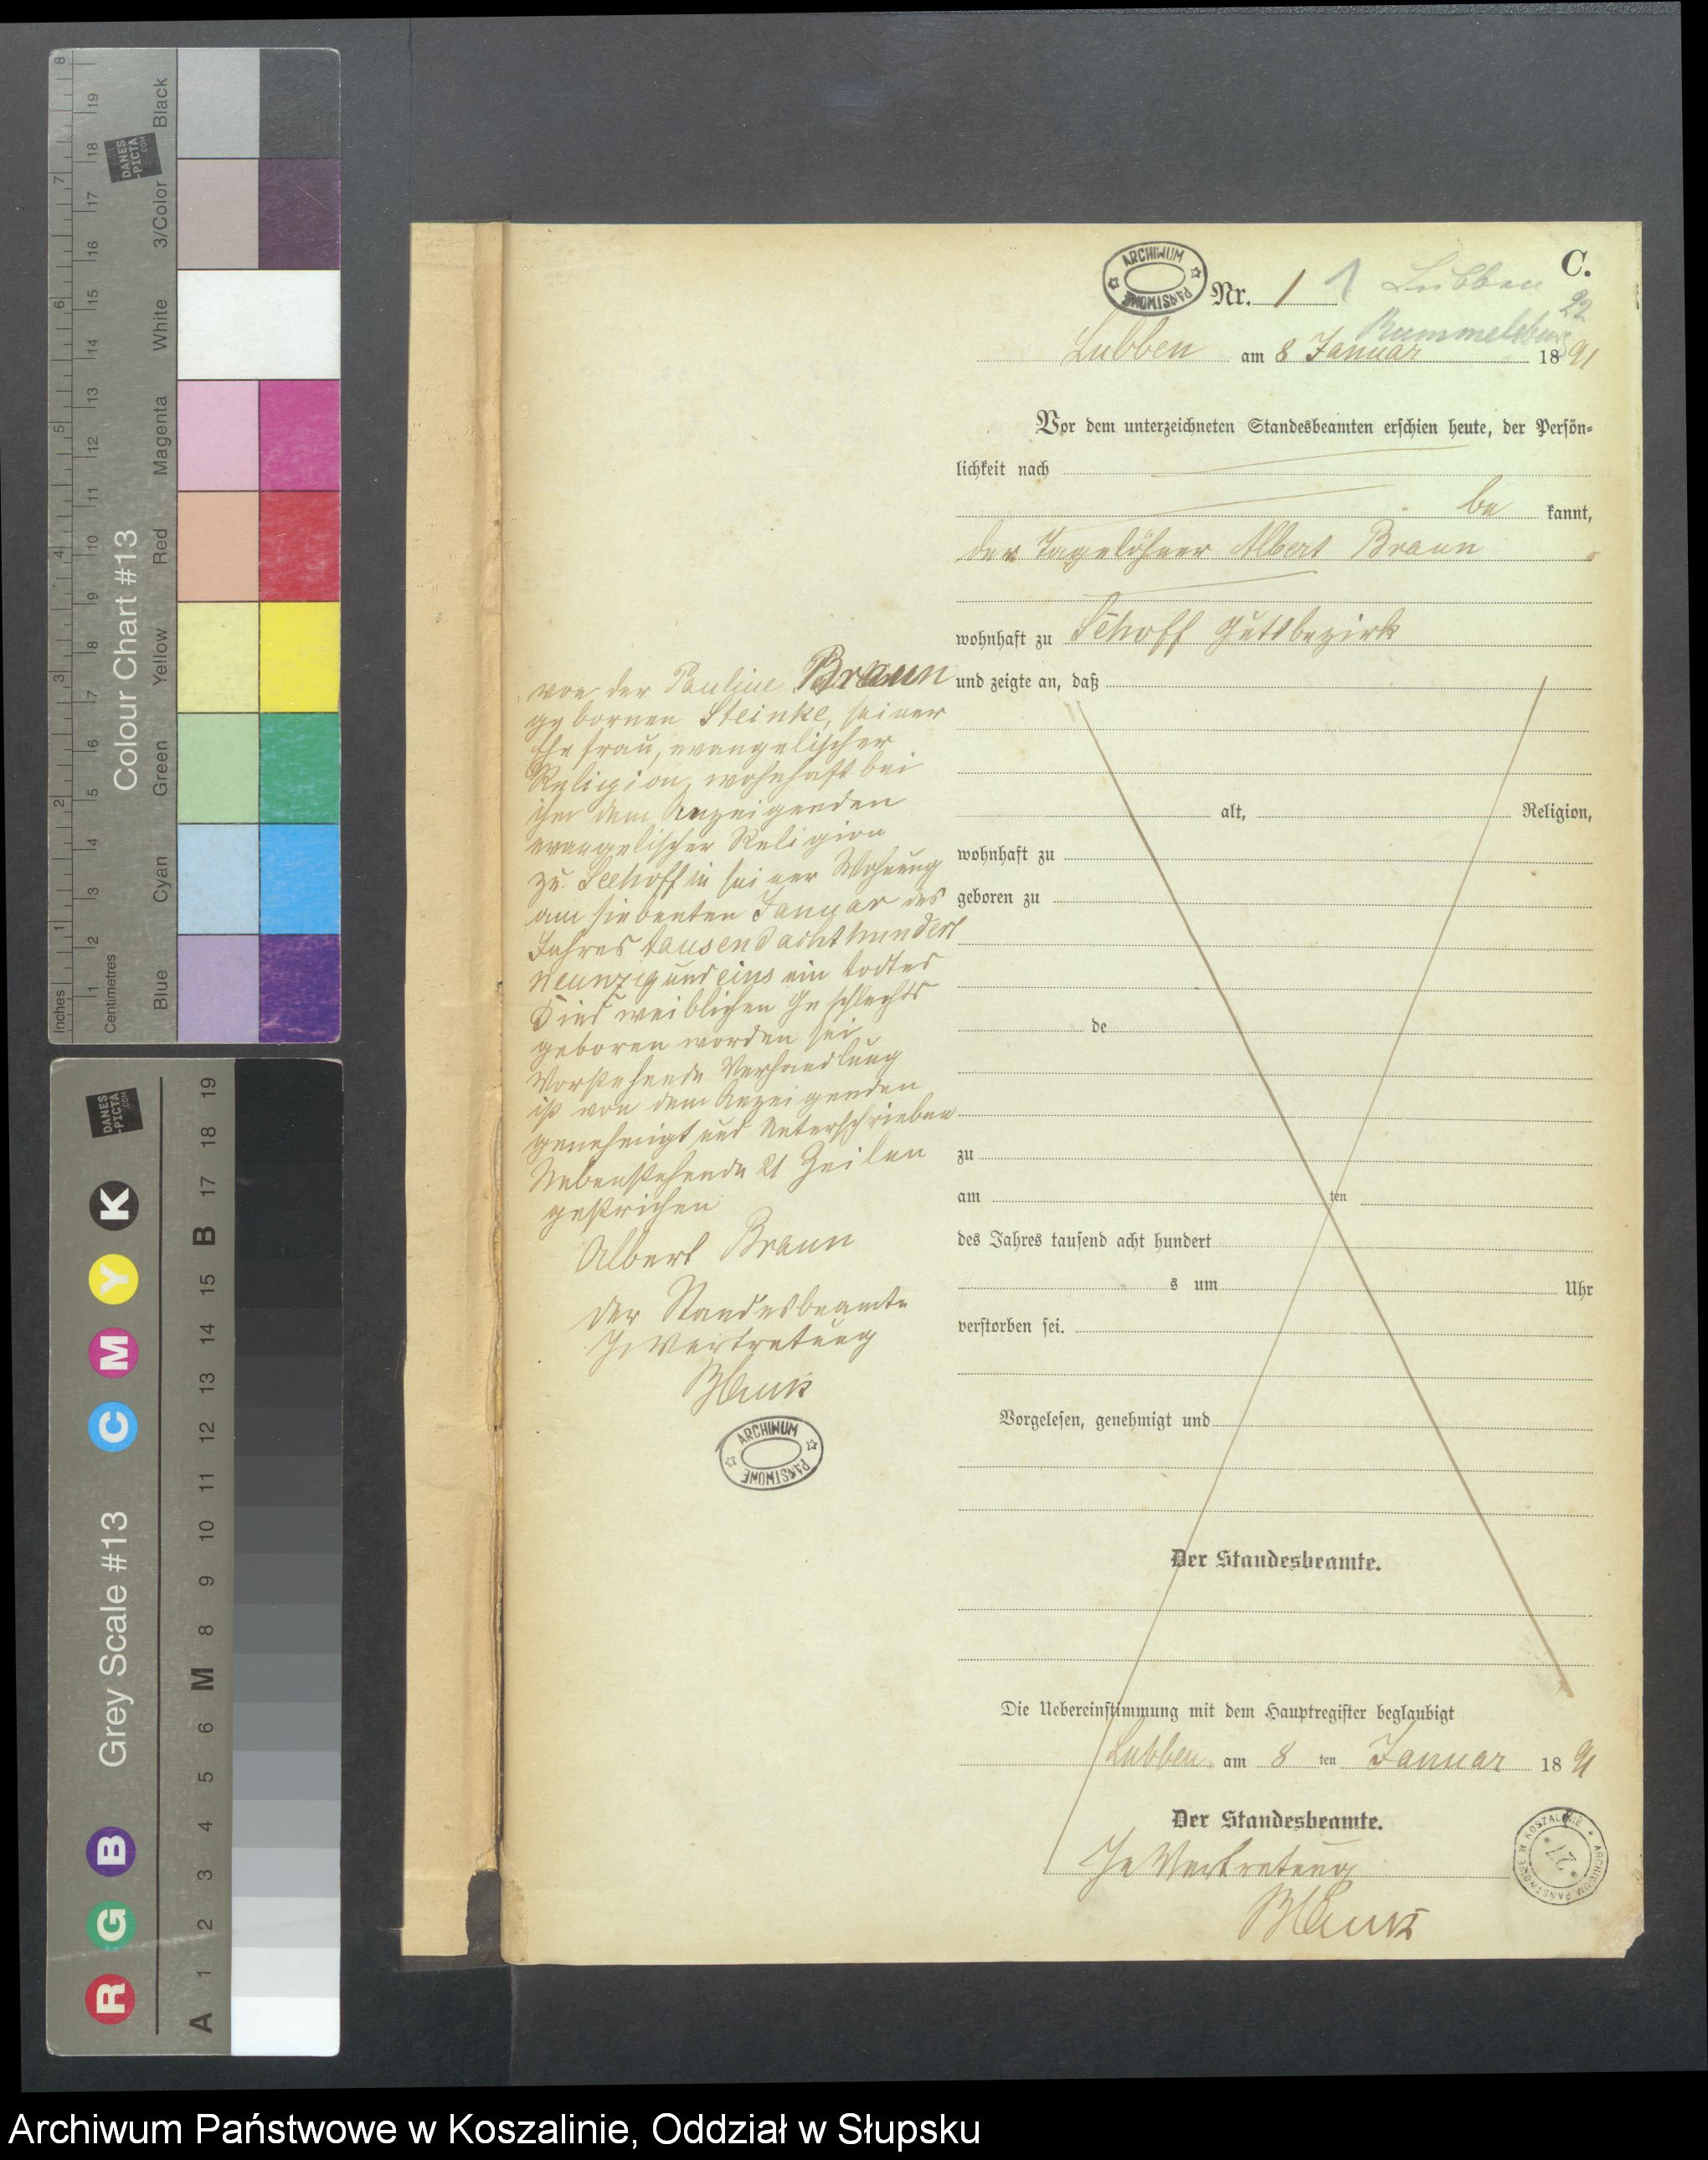 8
7
6
5
4
3
2
1
Inches
19
18
17
16
15
14
13
12
11
10
9
8
7
6
5
4
3
2
1
Centimetres
Colour Chart #13
DANES
-PICTA
.COM
Black
3/Color
White
Magenta
Red
Yellow
Green
Cyan
Blue
Grey Scale #13
DANES
-PICTA
.COM
R G B C M Y K
A 1 2 3 4 5 6 M 8 9 10 11 12 13 14 15 B 17 18 19
C.
ARCHIWUM PAŃSTWOWE
Nr. 1 1 Lubben
22
Rummelsburg
Lubben am 8 Januar 1891
Vor dem unterzeichneten Standesbeamten erschien heute, der Persön-
lichkeit nach
be kannt,
der Tagelöhner Albert Braun
wohnhaft zu Sehoff Gutsbezirk
und zeigte an, daß
alt, Religion,
wohnhaft zu
geboren zu
de
zu
am ten
des Jahres tausend acht hundert
s um Uhr
verstorben sei.
Vorgelesen, genehmigt und
Der Standesbeamte.
von der Pauline Braun
gebornen Steinke, seiner
Ehefrau, evangelischer
Religion, wohnhaft bei
ihm dem Anzeigenden
evangelischer Religion
zu Seehoff in seiner Wohnung
am siebenten Januar des
Jahres tausend acht hundert
neunzig und eins ein todtes
Kind weiblichen Geschlechts
geboren worden sei
Vorstehende Verhandlung
ist von dem Anzeigenden
genehmigt und unterschrieben
Nebenstehende 21 Zeilen
gestrichen
Albert Braun
Der Standesbeamte
In Vertretung
ARCHIWUM PAŃSTWOWE
Die Uebereinstimmung mit dem Hauptregister beglaubigt
Lubben am 8 ten Januar 1891
Der Standesbeamte.
In Vertretung
ARCHIWUM PAŃSTWOWE W KOSZALINIE
*27*
Archiwum Państwowe w Koszalinie, Oddział w Słupsku